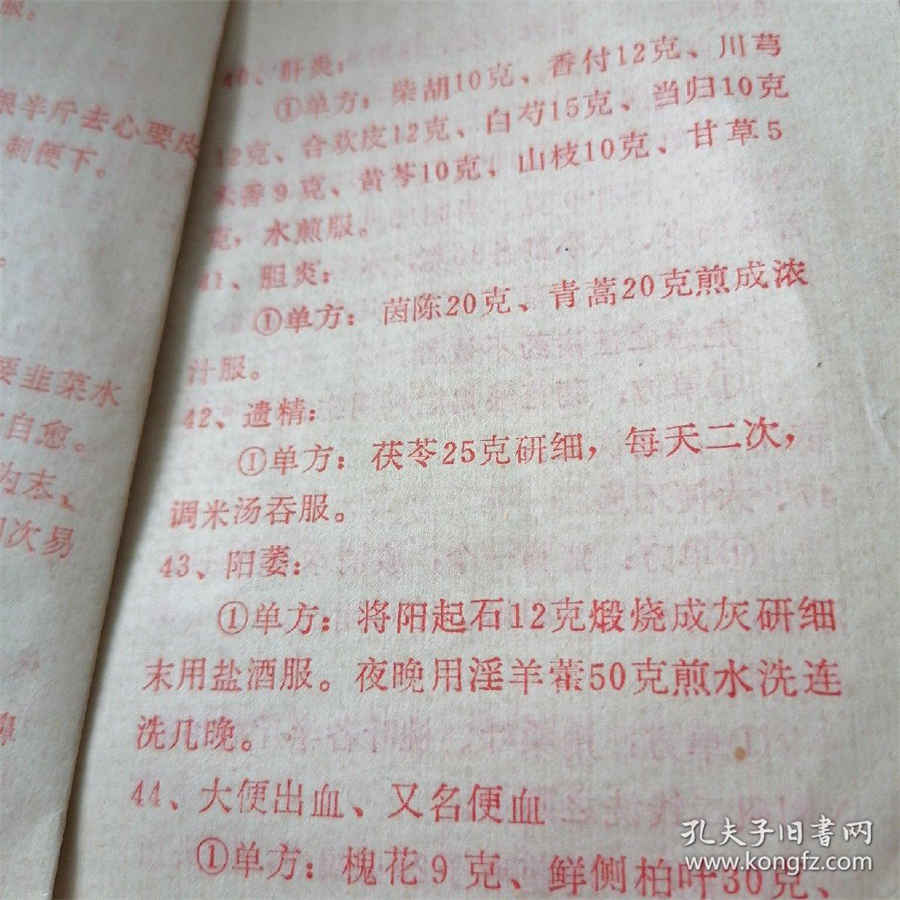 服。
根半斤去心要皮
制便下。
要韭菜水
自愈。
为志、
次易
40、肝炎:
①单方:柴胡10克、香付12克、川芎
12克、合欢皮12克、白芍15克、当归10克
木香9克、黄芩10克,山枝10克、甘草5
克,水煎服。
41、胆炎:
①单方:茵陈20克、青蒿20克煎成浓
汁服。
42、遗精:
①单方:茯苓25克研细,每天二次,
调米汤吞服。
43、阳萎:
①单方:将阳起石12克煅烧成灰研细
末用盐酒服。夜晚用淫羊藿50克煎水洗连
洗几晚。
44、大便出血、又名便血
①单方:槐花9克、鲜侧柏叶30克、
孔夫子旧书网
www.kongfz.com